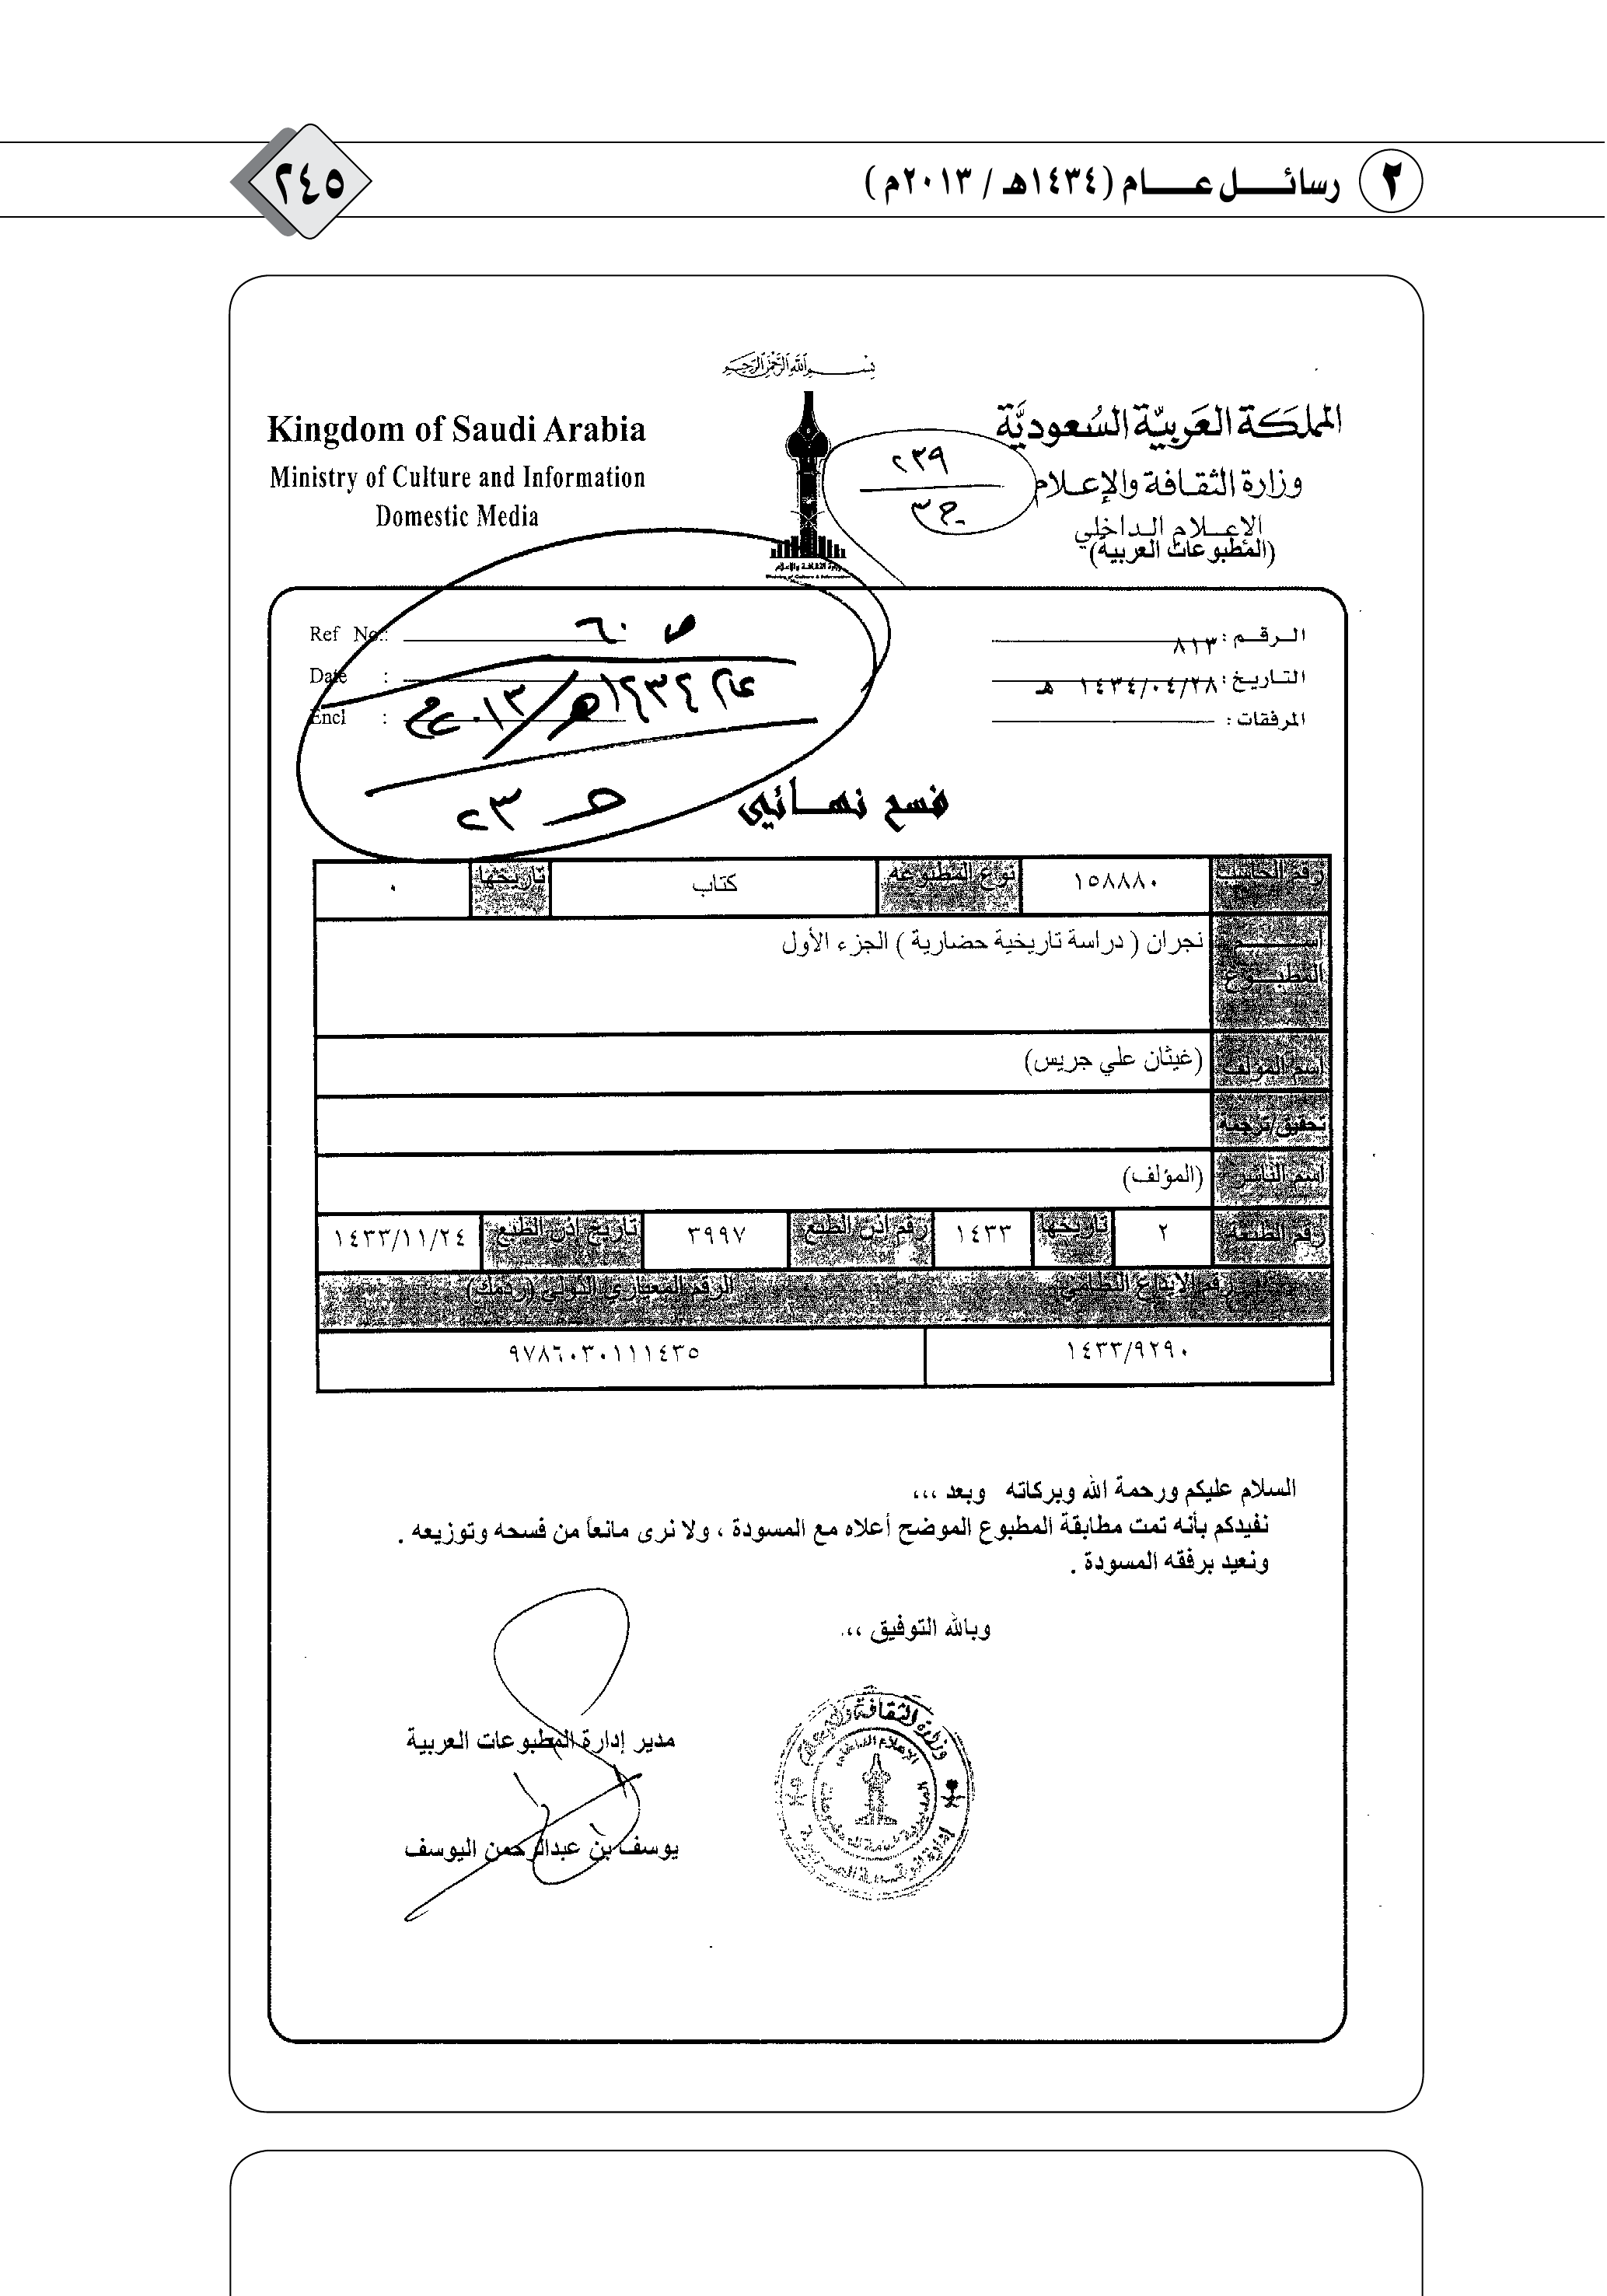 ٢ رسائل عام (١٤٣٤هـ / ٢٠١٣م)
٢٤٥
بسم الله الرحمن الرحيم
المملكة العربية السعودية
وزارة الثقافة والإعلام
الإعلام الداخلي
(المطبوعات العربية)
Kingdom of Saudi Arabia
Ministry of Culture and Information
Domestic Media
وزارة الثقافة والإعلام
Ministry of Culture & Information
٢٣٩
ج ٣
الرقم : ٨١٣
التاريخ : ١٤٣٤/٠٤/٢٨ هـ
المرفقات :
Ref No.:
Date :
Encl :
ص ٦٠
عام ١٤٣٤هـ/٢٠١٣م
ح ٢٣
فسح نهائي
رقم الحاسب ١٥٨٨٨٠ نوع المطبوعه كتاب تاريخها ٠
اسم المطبوع نجران ( دراسة تاريخية حضارية ) الجزء الأول
اسم المؤلف (غيثان علي جريس)
تحقيق/ترجمة
اسم الناشر (المؤلف)
رقم الطبعة ٢ تاريخها ١٤٣٣ رقم اذن الطبع ٣٩٩٧ تاريخ إذن الطبع ١٤٣٣/١١/٢٤
رقم الايداع النظامي الرقم المعياري الدولي (ردمك)
١٤٣٣/٩٢٩٠ ٩٧٨٦٠٣٠١١١٤٣٥
السلام عليكم ورحمة الله وبركاته وبعد ،،،
نفيدكم بأنه تمت مطابقة المطبوع الموضح أعلاه مع المسودة ، ولا نرى مانعاً من فسحه وتوزيعه .
ونعيد برفقه المسودة .
وبالله التوفيق ،،،
مدير إدارة المطبوعات العربية
يوسف بن عبدالرحمن اليوسف
وزارة الثقافة والإعلام
الإعلام الداخلي